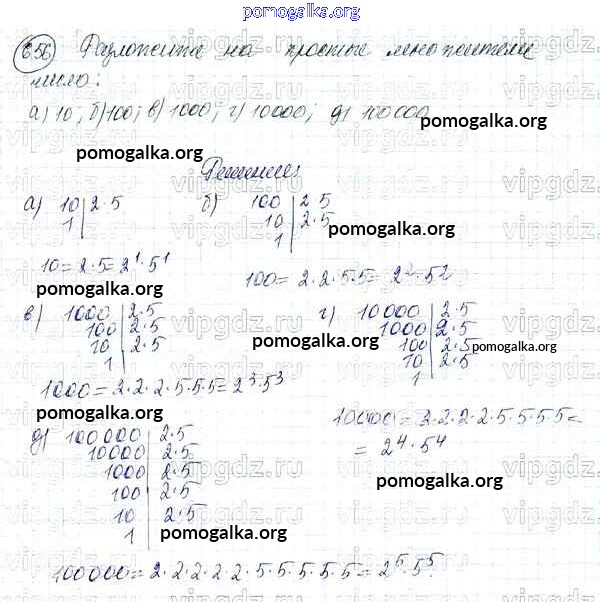 pomogalka.org
656 Разложите на простые множители
число:
а) 10; б) 100; в) 1000; г) 10000; д) 100000.
pomogalka.org pomogalka.org
Решение:
а) 10 | 2·5
1 |
б) 100 | 2·5
10 | 2·5
1 |
pomogalka.org
10 = 2·5 = 2¹·5¹
100 = 2·2·5·5 = 2²·5²
pomogalka.org
в) 1000 | 2·5
100 | 2·5
10 | 2·5
1 |
г) 10000 | 2·5
1000 | 2·5
100 | 2·5
10 | 2·5
1 |
pomogalka.org
pomogalka.org
1000 = 2·2·2·5·5·5 = 2³·5³
pomogalka.org
10000 = 2·2·2·2·5·5·5·5 =
= 2⁴·5⁴
д) 100000 | 2·5
10000 | 2·5
1000 | 2·5
100 | 2·5
10 | 2·5
1 |
pomogalka.org
pomogalka.org
100000 = 2·2·2·2·2·5·5·5·5·5 = 2⁵·5⁵.
vipgdz.ru